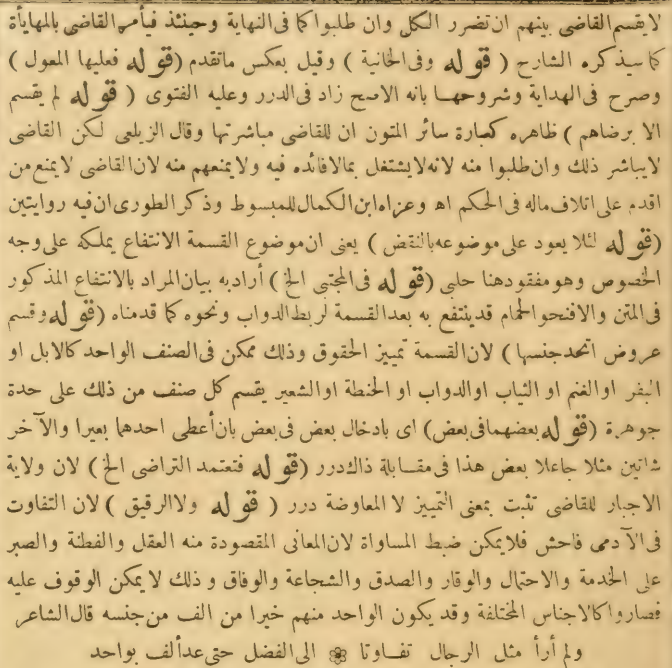 لايقسم القاضى بينهم ان تضرر الكل وان طلبوا كما فى النهاية وحينئذ فيأمر القاضى بالمهايأة
كما سيذكره الشارح ( قوله وفى الخانية ) وقيل بعكس ماتقدم (قوله فعليها المعول )
وصرح فى الهداية وشروحها بانه الاصح زاد فى الدرر وعليه الفتوى ( قوله لم يقسم
الا برضاهم ) ظاهره كعبارة سائر المتون ان للقاضى مباشرتها وقال الزيلعى لكن القاضى
لايباشر ذلك وان طلبوا منه لانه لايشتغل بمالا فائده فيه ولايمنعهم منه لان القاضى لايمنع من
اقدم على اتلاف ماله فى الحكم اه وعزاه ابن الكمال للمبسوط وذكر الطورى ان فيه روايتين
(قوله لئلا يعود على موضوعه بالنقض ) يعنى ان موضوع القسمة الانتفاع بملكه على وجه
الخصوص وهو مفقود هنا حلبى (قوله فى المجتبى الخ ) أراد به بيان المراد بالانتفاع المذكور
فى المتن والا فنحو الحمام قد ينتفع به بعد القسمة لربط الدواب ونحوه كما قدمناه (قوله وقسم
عروض اتحد جنسها ) لان القسمة تمييز الحقوق وذلك ممكن فى الصنف الواحد كالابل او
البقر اوالغنم او الثياب اوالدواب او الحنطة اوالشعير يقسم كل صنف من ذلك على حدة
جوهرة (قوله بعضهما فى بعض) اى بادخال بعض فى بعض بان أعطى احدهما بعيرا والآخر
شاتين مثلا جاعلا بعض هذا فى مقابلة ذاك درر (قوله فتعتمد التراضى الخ ) لان ولاية
الاجبار للقاضى تثبت بمعنى التمييز لا المعاوضة درر ( قوله ولا الرقيق ) لان التفاوت
فى الآدمى فاحش فلايمكن ضبط المساواة لان المعانى المقصودة منه العقل والفطنة والصبر
على الخدمة والاحتمال والوقار والصدق والشجاعة والوفاق و ذلك لا يمكن الوقوف عليه
فصاروا كالاجناس المختلفة وقد يكون الواحد منهم خيرا من الف من جنسه قال الشاعر
ولم أر أ مثل الرجال تفــاوتا ۞ الى الفضل حتى عد ألف بواحد